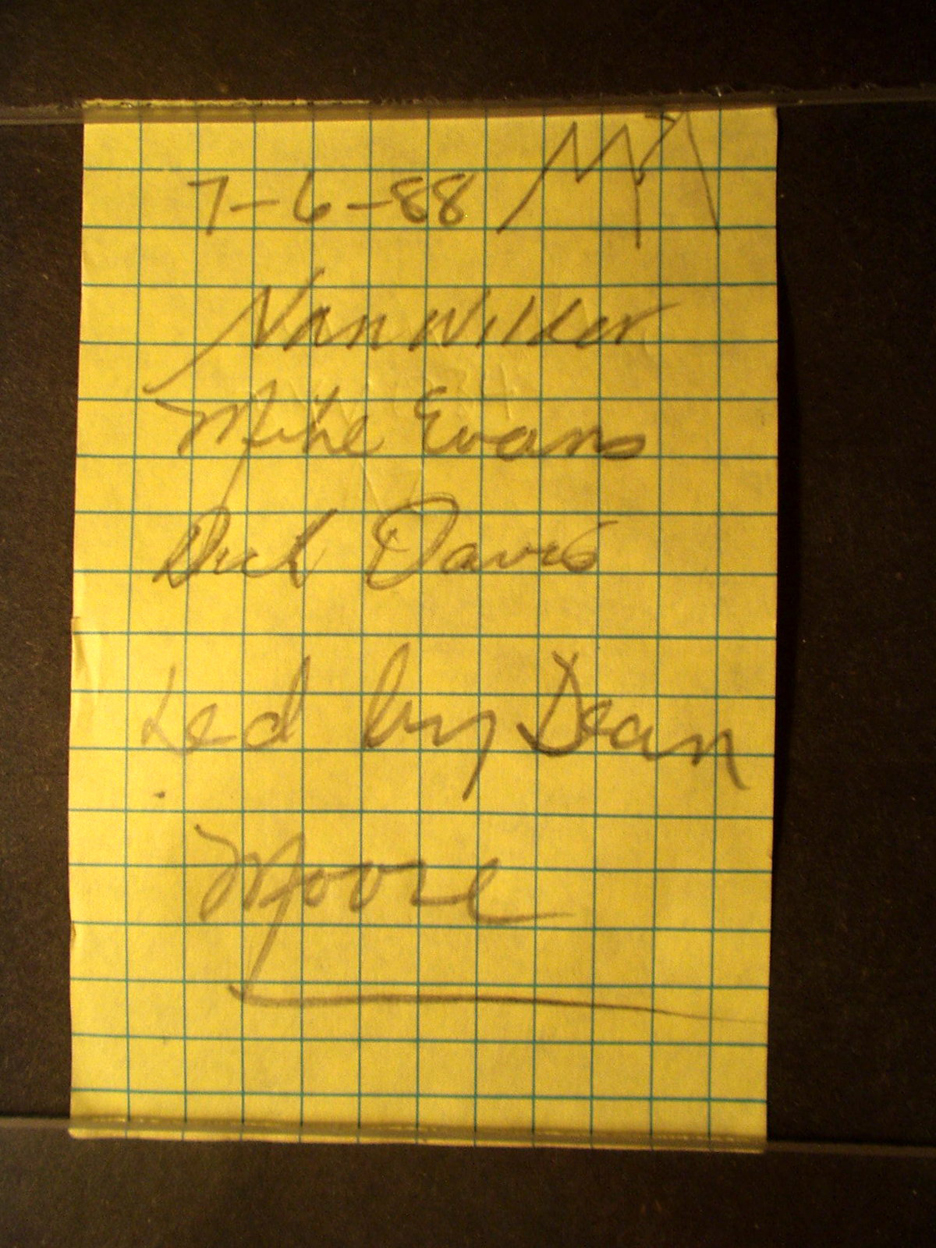 7-6-88
Nan Wilder
Mike Evans
Dick Davis
Led by Dean
Moore